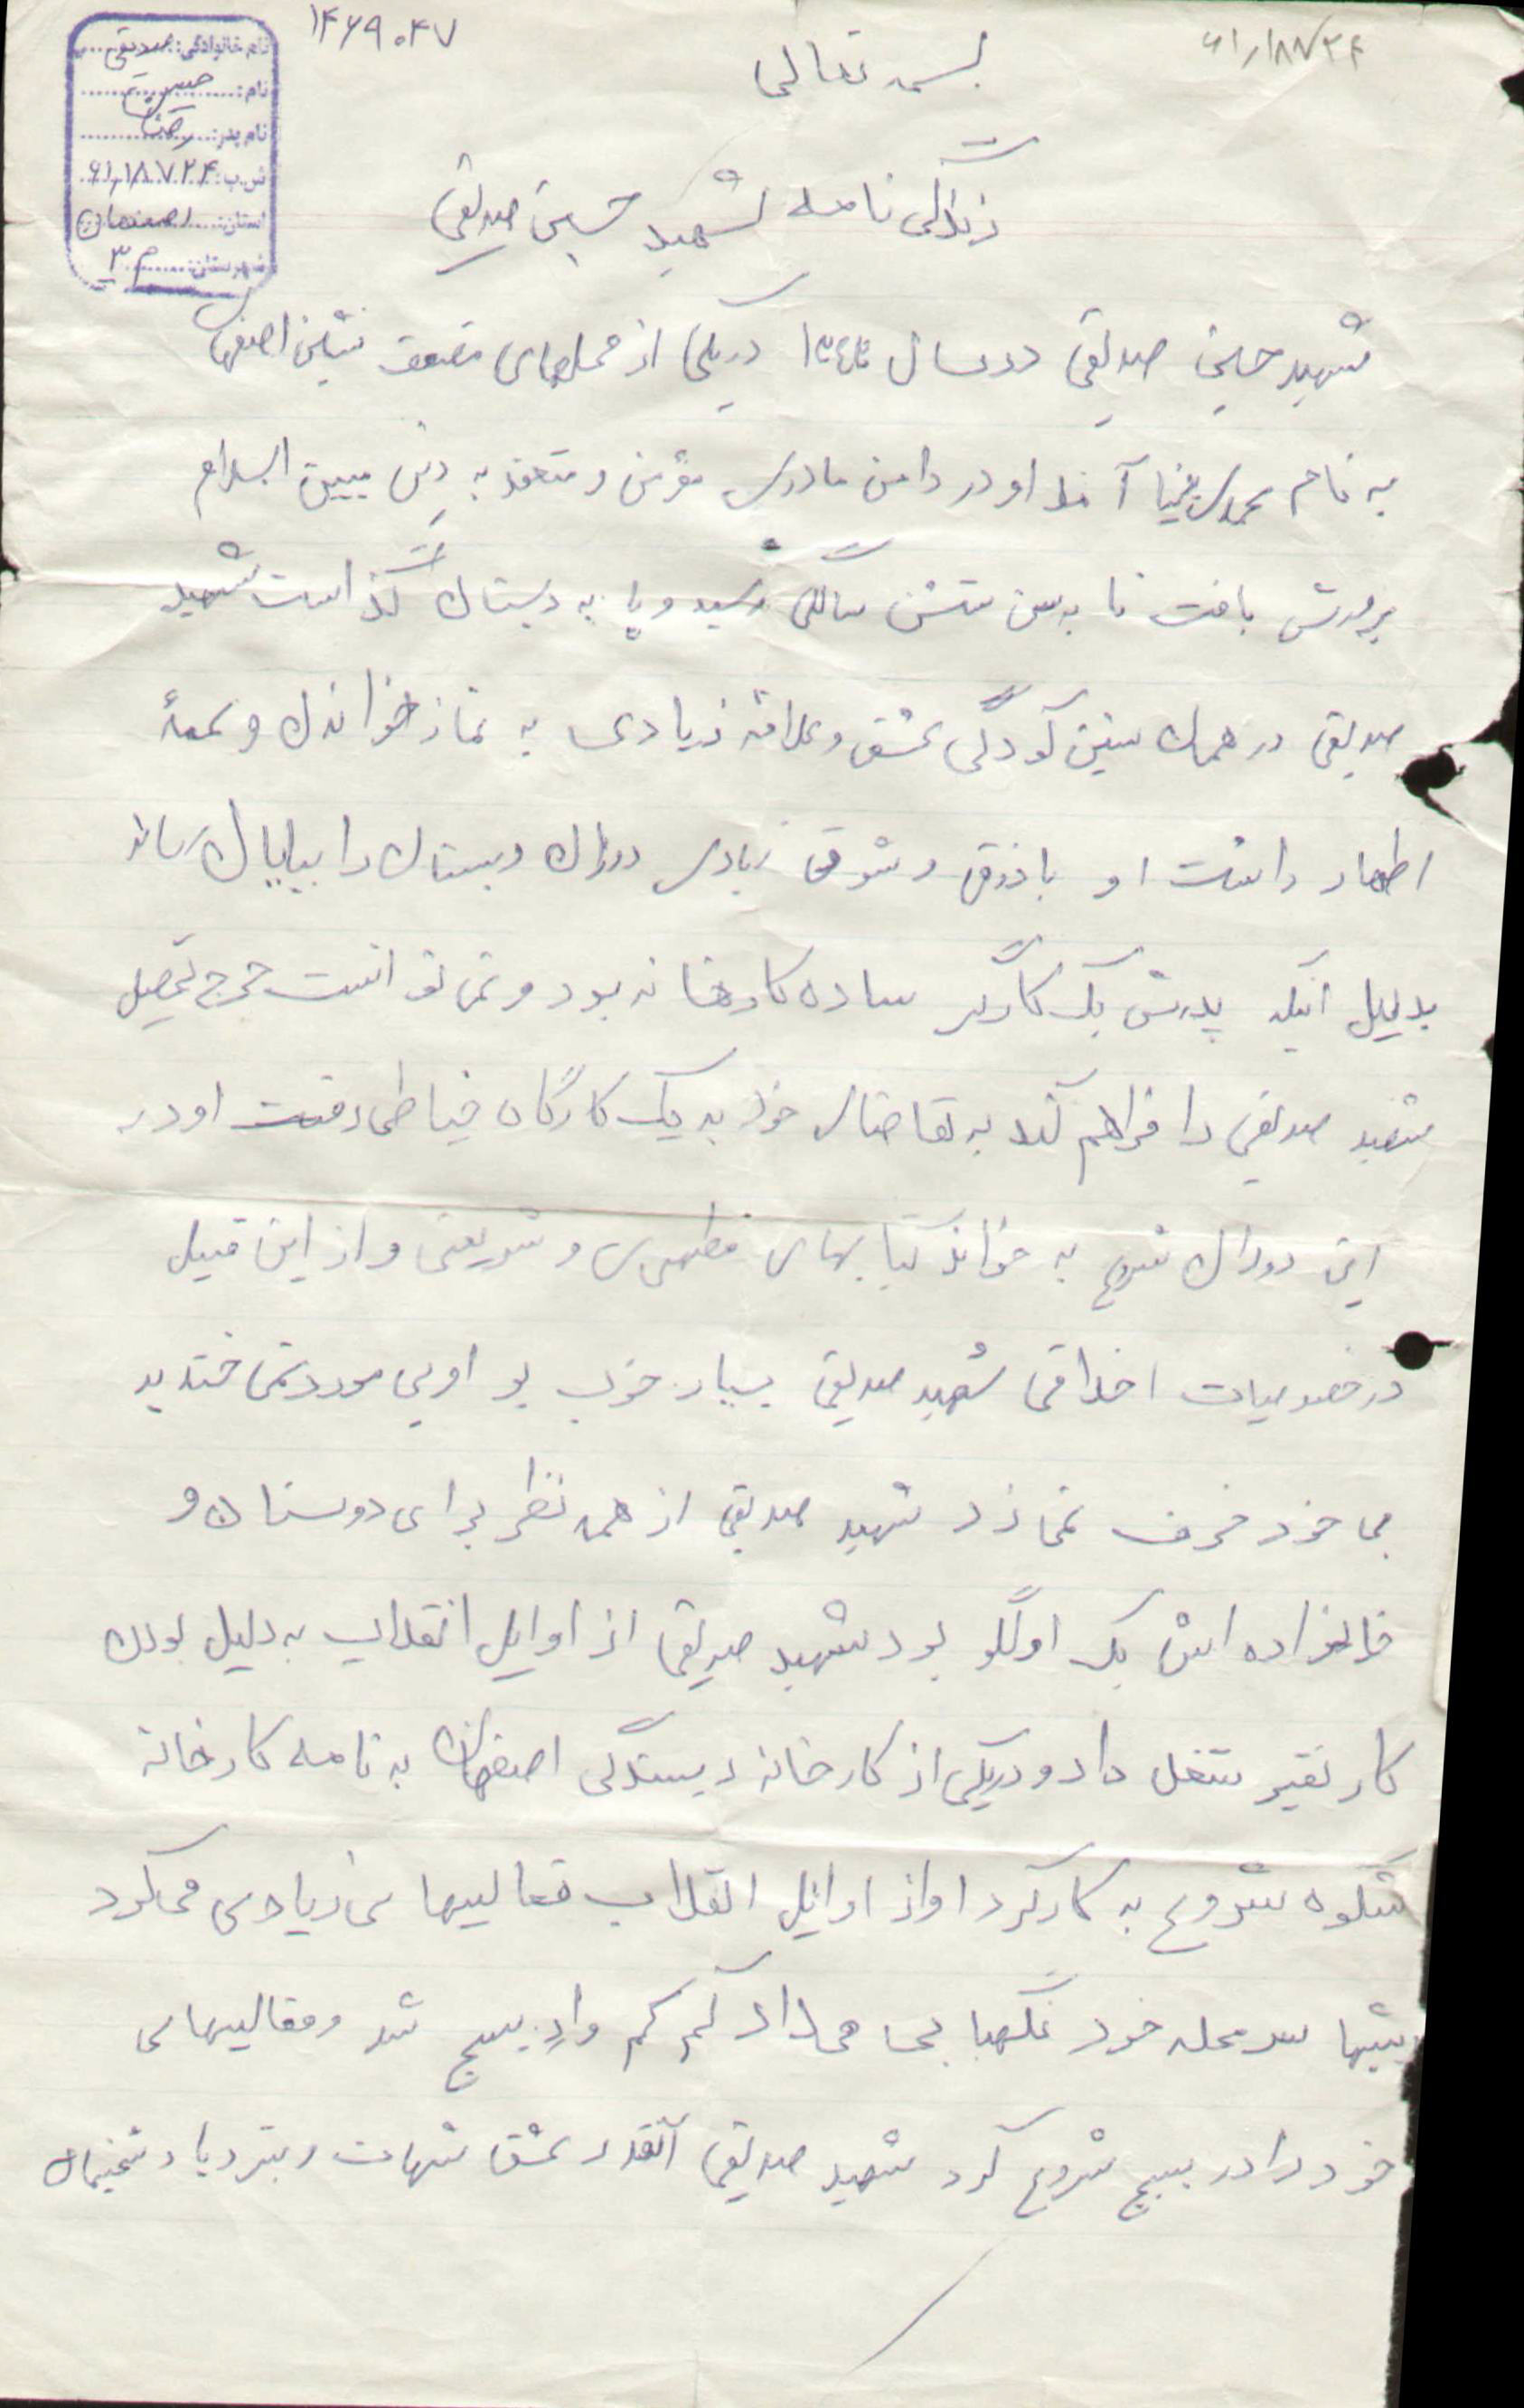 ۱۴۶۹۰۴۷
۶۱/۱۸۷۲۴
نام خانوادگی: صدیقی
نام: حسین
نام پدر: رضا
ش ب: ۶۱/۱۸۷۲۴
استان: اصفهان
شهرستان: م ۳
بسمه تعالی
زندگی نامه شهید حسین صدیقی
شهید حسین صدیقی در سال در یکی از محلهای نشین اصفهان
به نام آمد او در دامن مادری مؤمن و متعهد به دین مبین اسلام
پرورش یافت تا به سن شش سالگی رسید و پا به دبستان گذاست شهید
صدیقی در همان سنین کودگی عشق و علاقه زیادی به نماز خواندن و
اطهار داشت او با ذوق و شوق زیادی دوران دبستان را بپایان رساند
بدلیل اینکه پدرش یک کارگر ساده کارخانه بود و نمی توانست خرج تحصیل
شهید صدیقی را فراهم کند به تقاضای خود به یک کارگاه خیاطی رفت او در
این دوران شروع به خواند کتابهای مطهری و شریعتی و از این قبیل
در خصوصیات اخلاقی شهید صدیقی بسیار خوب بو او بی مورد نمی خندید
بی خود حرف نمی زد شهید صدیقی از همه نظر برای دوستان و
خانواده اش یک اولگو بود شهید صدیقی از اوایل انقلاب به دلیل بودن
کار تغیر شغل داد و دریکی از کارخانه ریسندگی اصفهان به نامه کارخانه
شکوه شروع به کار کرد او از اوایل انقلاب فعالیتهای زیادی می کرد
شبها سر محله خود نگهبانی می داد کم کم وارد بسیج شد و فعالیتهای
خود را در بسیج شروع کرد شهید صدیقی آنقدر عشق شهادت